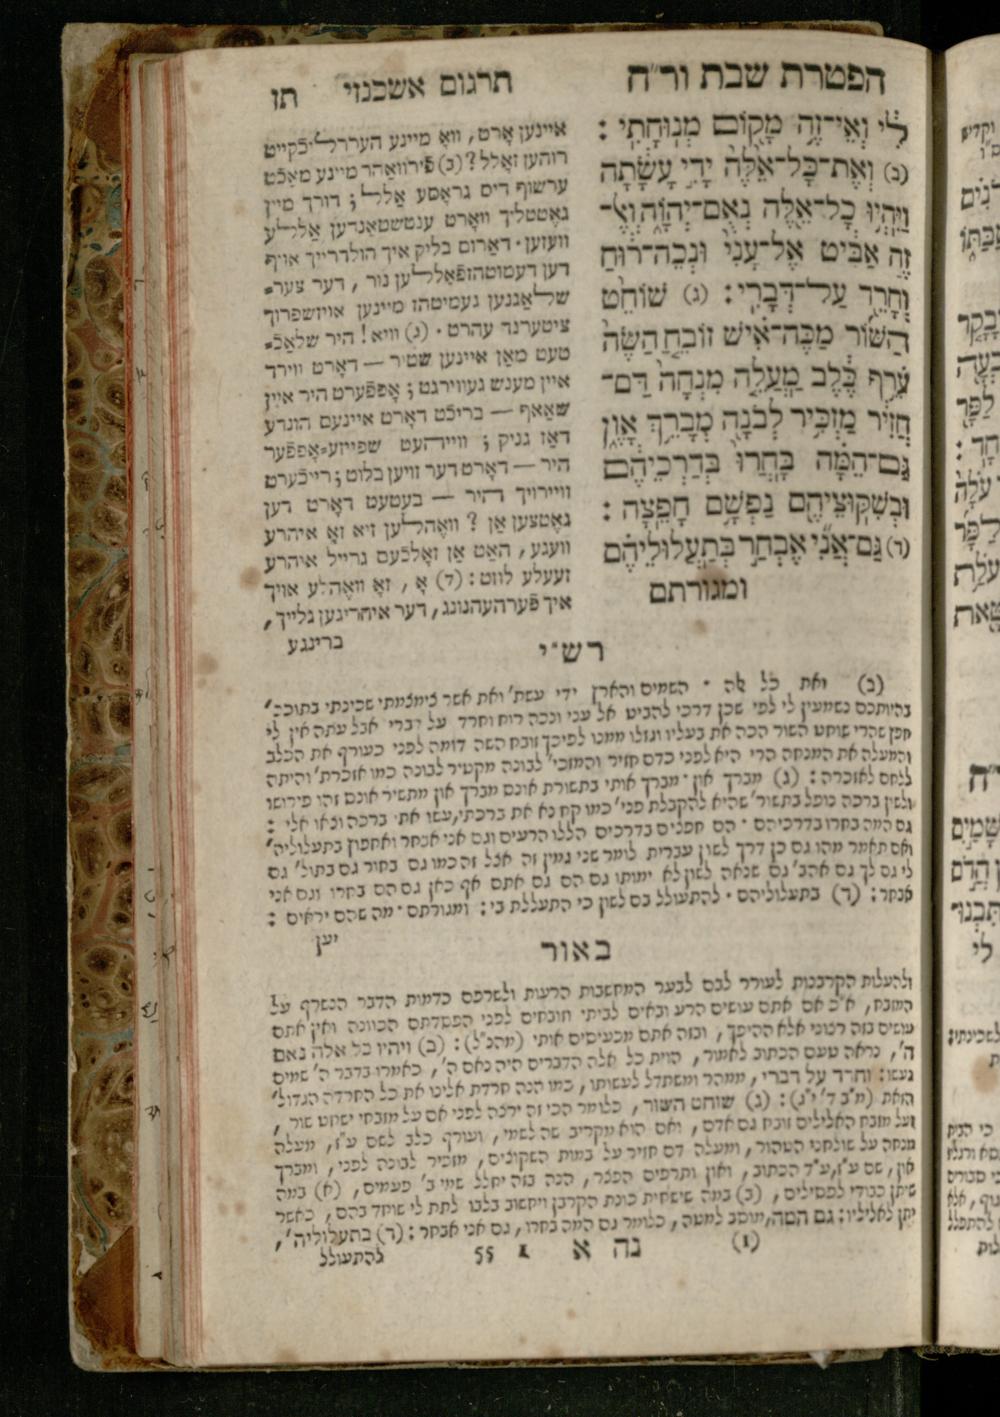 הפטרת שבת ור״ח
תרגום אשכנזי
תז
לִ֔י וְאֵי־זֶ֥ה מָק֖וֹם מְנוּחָתִֽי׃
(ב) וְאֶת־כָּל־אֵ֙לֶּה֙ יָדִ֣י עָשָׂ֔תָה
וַיִּהְי֥וּ כָל־אֵ֖לֶּה נְאֻם־יְהוָ֑ה וְאֶל־
זֶ֣ה אַבִּ֔יט אֶל־עָנִי֙ וּנְכֵה־ר֔וּחַ
וְחָרֵ֖ד עַל־דְּבָרִֽי׃ (ג) שׁוֹחֵ֨ט
הַשּׁ֜וֹר מַכֵּה־אִ֗ישׁ זוֹבֵ֤חַ הַשֶּׂה֙
עֹ֣רֵֽף כֶּ֔לֶב מַעֲלֵ֤ה מִנְחָה֙ דַּם־
חֲזִ֔יר מַזְכִּ֥יר לְבֹנָ֖ה מְבָ֣רֵֽךְ אָ֑וֶן
גַּם־הֵ֗מָּה בָּֽחֲרוּ֙ בְּדַרְכֵיהֶ֔ם
וּבְשִׁקּוּצֵיהֶ֖ם נַפְשָׁ֥ם חָפֵֽצָה׃
(ד) גַּם־אֲנִ֞י אֶבְחַ֣ר בְּתַעֲלוּלֵיהֶ֗ם
ומגורתם
איינען אָרט, וואָ מיינע העררליכקייט
רוהען זאָלל? (ב) פֿירוואהר מיינע מאכֿט
ערשוף דיס גראָסע אַלל; דורך מיין
געטטליך וואָרט ענטשטאַנדען אַללע
וועזען · דאַרום בליק איך הולדרייך אויף
דען דעמוטהזפֿאָללען נור, דער צער־
שלאַגנען געמיטהז מיינען אויזשפרוך
ציטערנד עהרט · (ג) וויא! היר שלאַכֿ־
טעט מאַן איינען שטיר — דאָרט ווירד
איין מענש געווירגט; אָפּפֿערט היר איין
שאַאף — בריכֿט דאָרט איינעם הונדע
דאַז גניק; ווייהעט שפייזע־אָפּפֿער
היר — דאָרט דער זויען בלוט; רייכֿערט
וויירויך היר — בעטעט דאָרט דען
גאָטצען אַן? וואָהלען זיא זאָ איהרע
וועגע, האַט אַן זאָלכֿעם גרייל איהרע
זעעלע לוזט: (ד) אָ, זאָ וואָהלע אויך
איך פֿערהעהנונג, דער איהריגען גלייך,
ברינגע
רש״י
(ב) ואת כל אלה · השמים והארץ ידי עשת׳ ואת אשר צימצמתי שכינתי בתוככ׳
בהיותכם נשמעין לי לפי שכן דרכי להביט אל עני ונכה רוח וחרד על דברי אבל עתה אין לי
חפץ שהרי שוחט השור הכה את בעליו וגזלו ממנו לפיכך זובח השה דומה לפני כעורף את הכלב
והמעלה את המנחה הרי היא לפני כדם חזיר והמזכי׳ לבונה מקטיר לבונה כמו אזכרת׳ והיתה
ללחם לאזכרה: (ג) מברך און · מברך אותי בתשורת אונס מברך און מתשיר אונס זהו פירושו
ולשון ברכה נופל בתשור׳ שהיא להקבלת פני׳ כמו קח נא את ברכתי, עשו אתי ברכה ובאו אלי:
גם המה בחרו בדרכיהם · הם חפצים בדרכים הללו הרעים וגם אני אבחר ואחפוץ בתעלוליה׳
ואם תאמר מהו גם כן דרך לשון עברית לומר שני גמין זה אצל זה כמו גם בחור גם בתול׳ גם
לי גם לך גם אהב׳ גם שנאה לשון לא ימותו גם הם גם אתם אף כאן גם הם בחרו וגם אני
אבחר: (ד) בתעלוליהם · להתעולל בם לשון כי התעללת בי: ומגורתם · מה שהם יראים:
יען
באור
ולהעלות הקרבנות לעורר לבם לבער המחשבות הרעות ולשרפם כדמות הדבר הנשרף על
המזבח, א״כ אם אתם עושים הרע ובאים לביתי וזובחים לפני הפסדתם הכוונה ואין אתם
עושים בזה רצוני אלא ההיפך, ובזה אתם מכעיסים אותי (מהנ״ל): (ב) ויהיו כל אלה נאם
ה׳, נראה טעם הכתוב לאמור, הוית כל אלה הדברים היה נאם ה׳, כאמרו בדבר ה׳ שמים
נעשו: וחרד על דברי, ממהר ומשתדל לעשותו, כמו הנה חרדת אלינו את כל החרדה הגדול׳
הזאת (מ״ב ד׳ י״ג): (ג) שוחט השור, כלומר הכי זה ירצה לפני אם על מזבחי ישחט שור,
ועל מזבח האלילים זובח גם אדם, ואם הוא מקריב שה לשמי, ועורף כלב לשם ע״ז, מעלה
מנחה על שולחני הטהור, ומעלה דם חזיר על במות השקוצים, מזכיר לבונה לפני, ומברך
און, שם ע״ז, ע״ד הכתוב, ואון ותרפים הפצר, הנה בזה יחלל שמי ב׳ פעמים, (א) במה
שיתן כבודי לפסילים, (ב) במה שישחית כונת הקרבן ויחשוב בלבו לתת לי שוחד בהם, כאשר
יתן לאליליו: גם המה, מוסב למטה, כלומר גם המה בחרו, גם אני אבחר: (ד) בתעלוליה׳,
(ו)
נה א
55
להתעולל